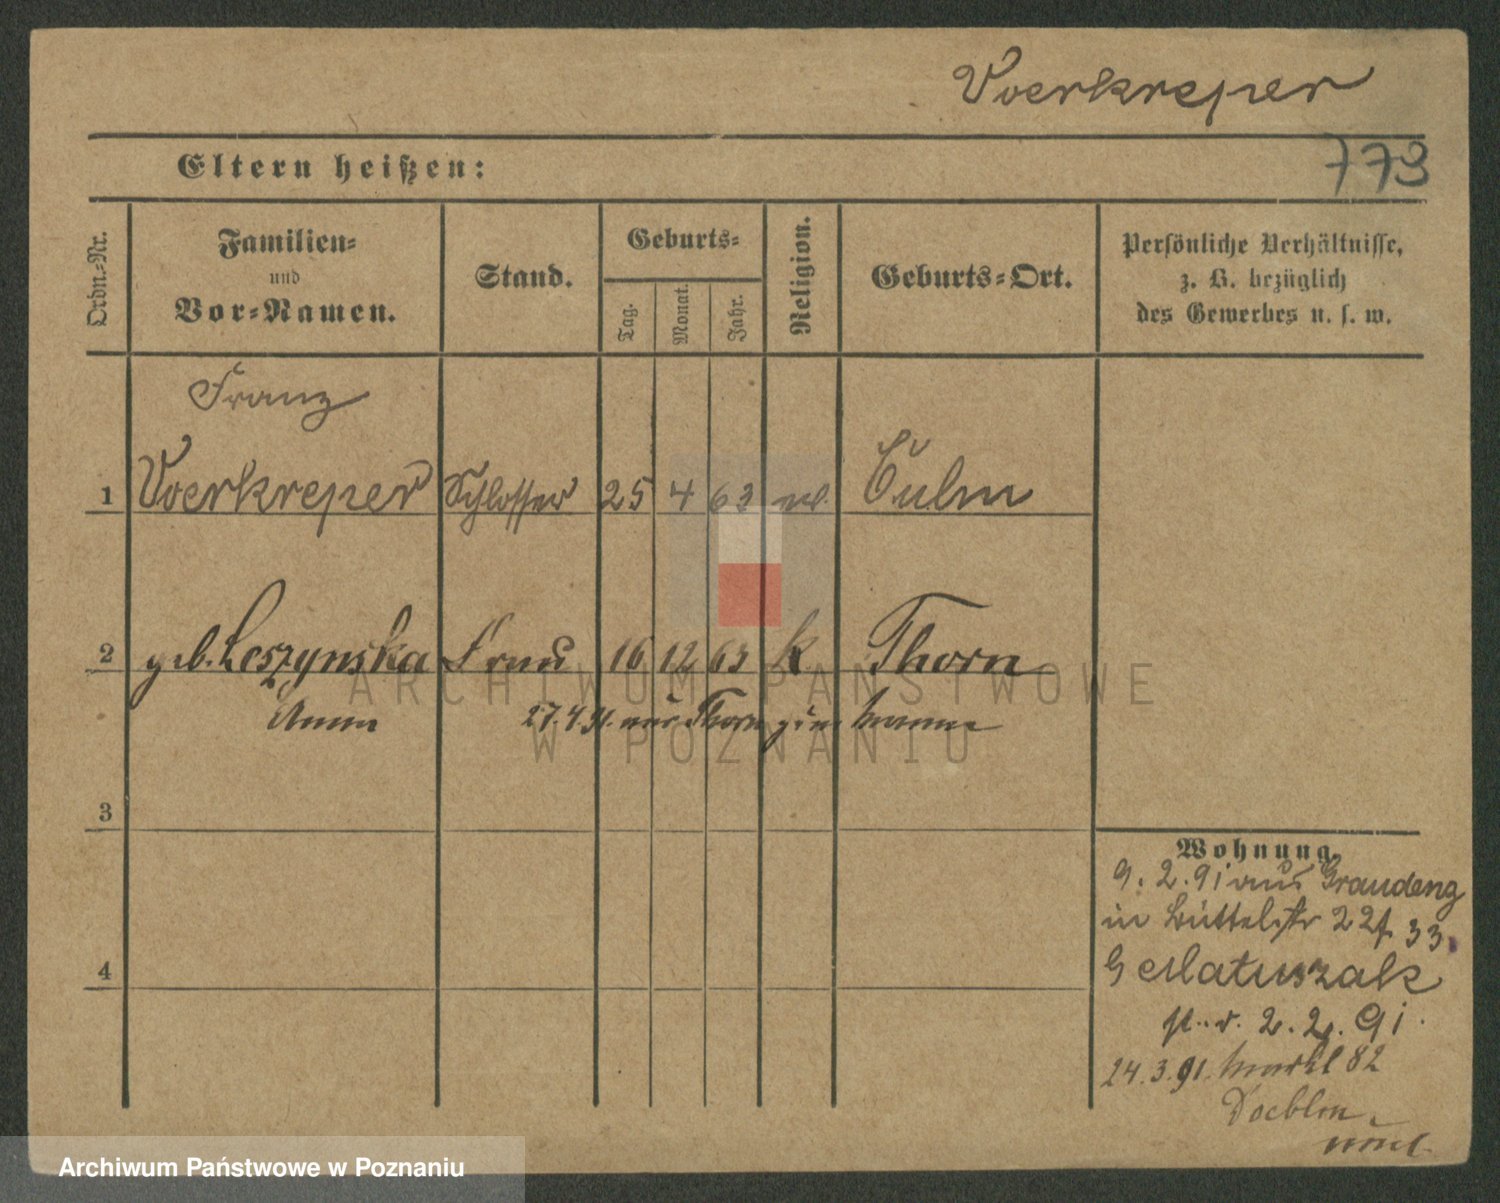 Voerkreper
773
Eltern heißen:
Ordn.-Nr.
Familien-
und
Vor-Namen.
Stand.
Geburts-
Tag.
Monat.
Jahr.
Religion.
Geburts-Ort.
Persönliche Verhältnisse,
z. B. bezüglich
des Gewerbes u. s. w.
Franz
1 Voerkreper Schlosser 25 4 63 Culm
2 geb. Leszynska Frau 16 12 63 k. Thorn
Anna 27.4.91. aus Thorn
ARCHIWUM PAŃSTWOWE
W POZNANIU
3
4
Wohnung.
9. 2. 91 aus Graudenz
in Büttelstr 22
Matuszak
2. 2. 91.
24. 3. 91. Markt 82
Archiwum Państwowe w Poznaniu